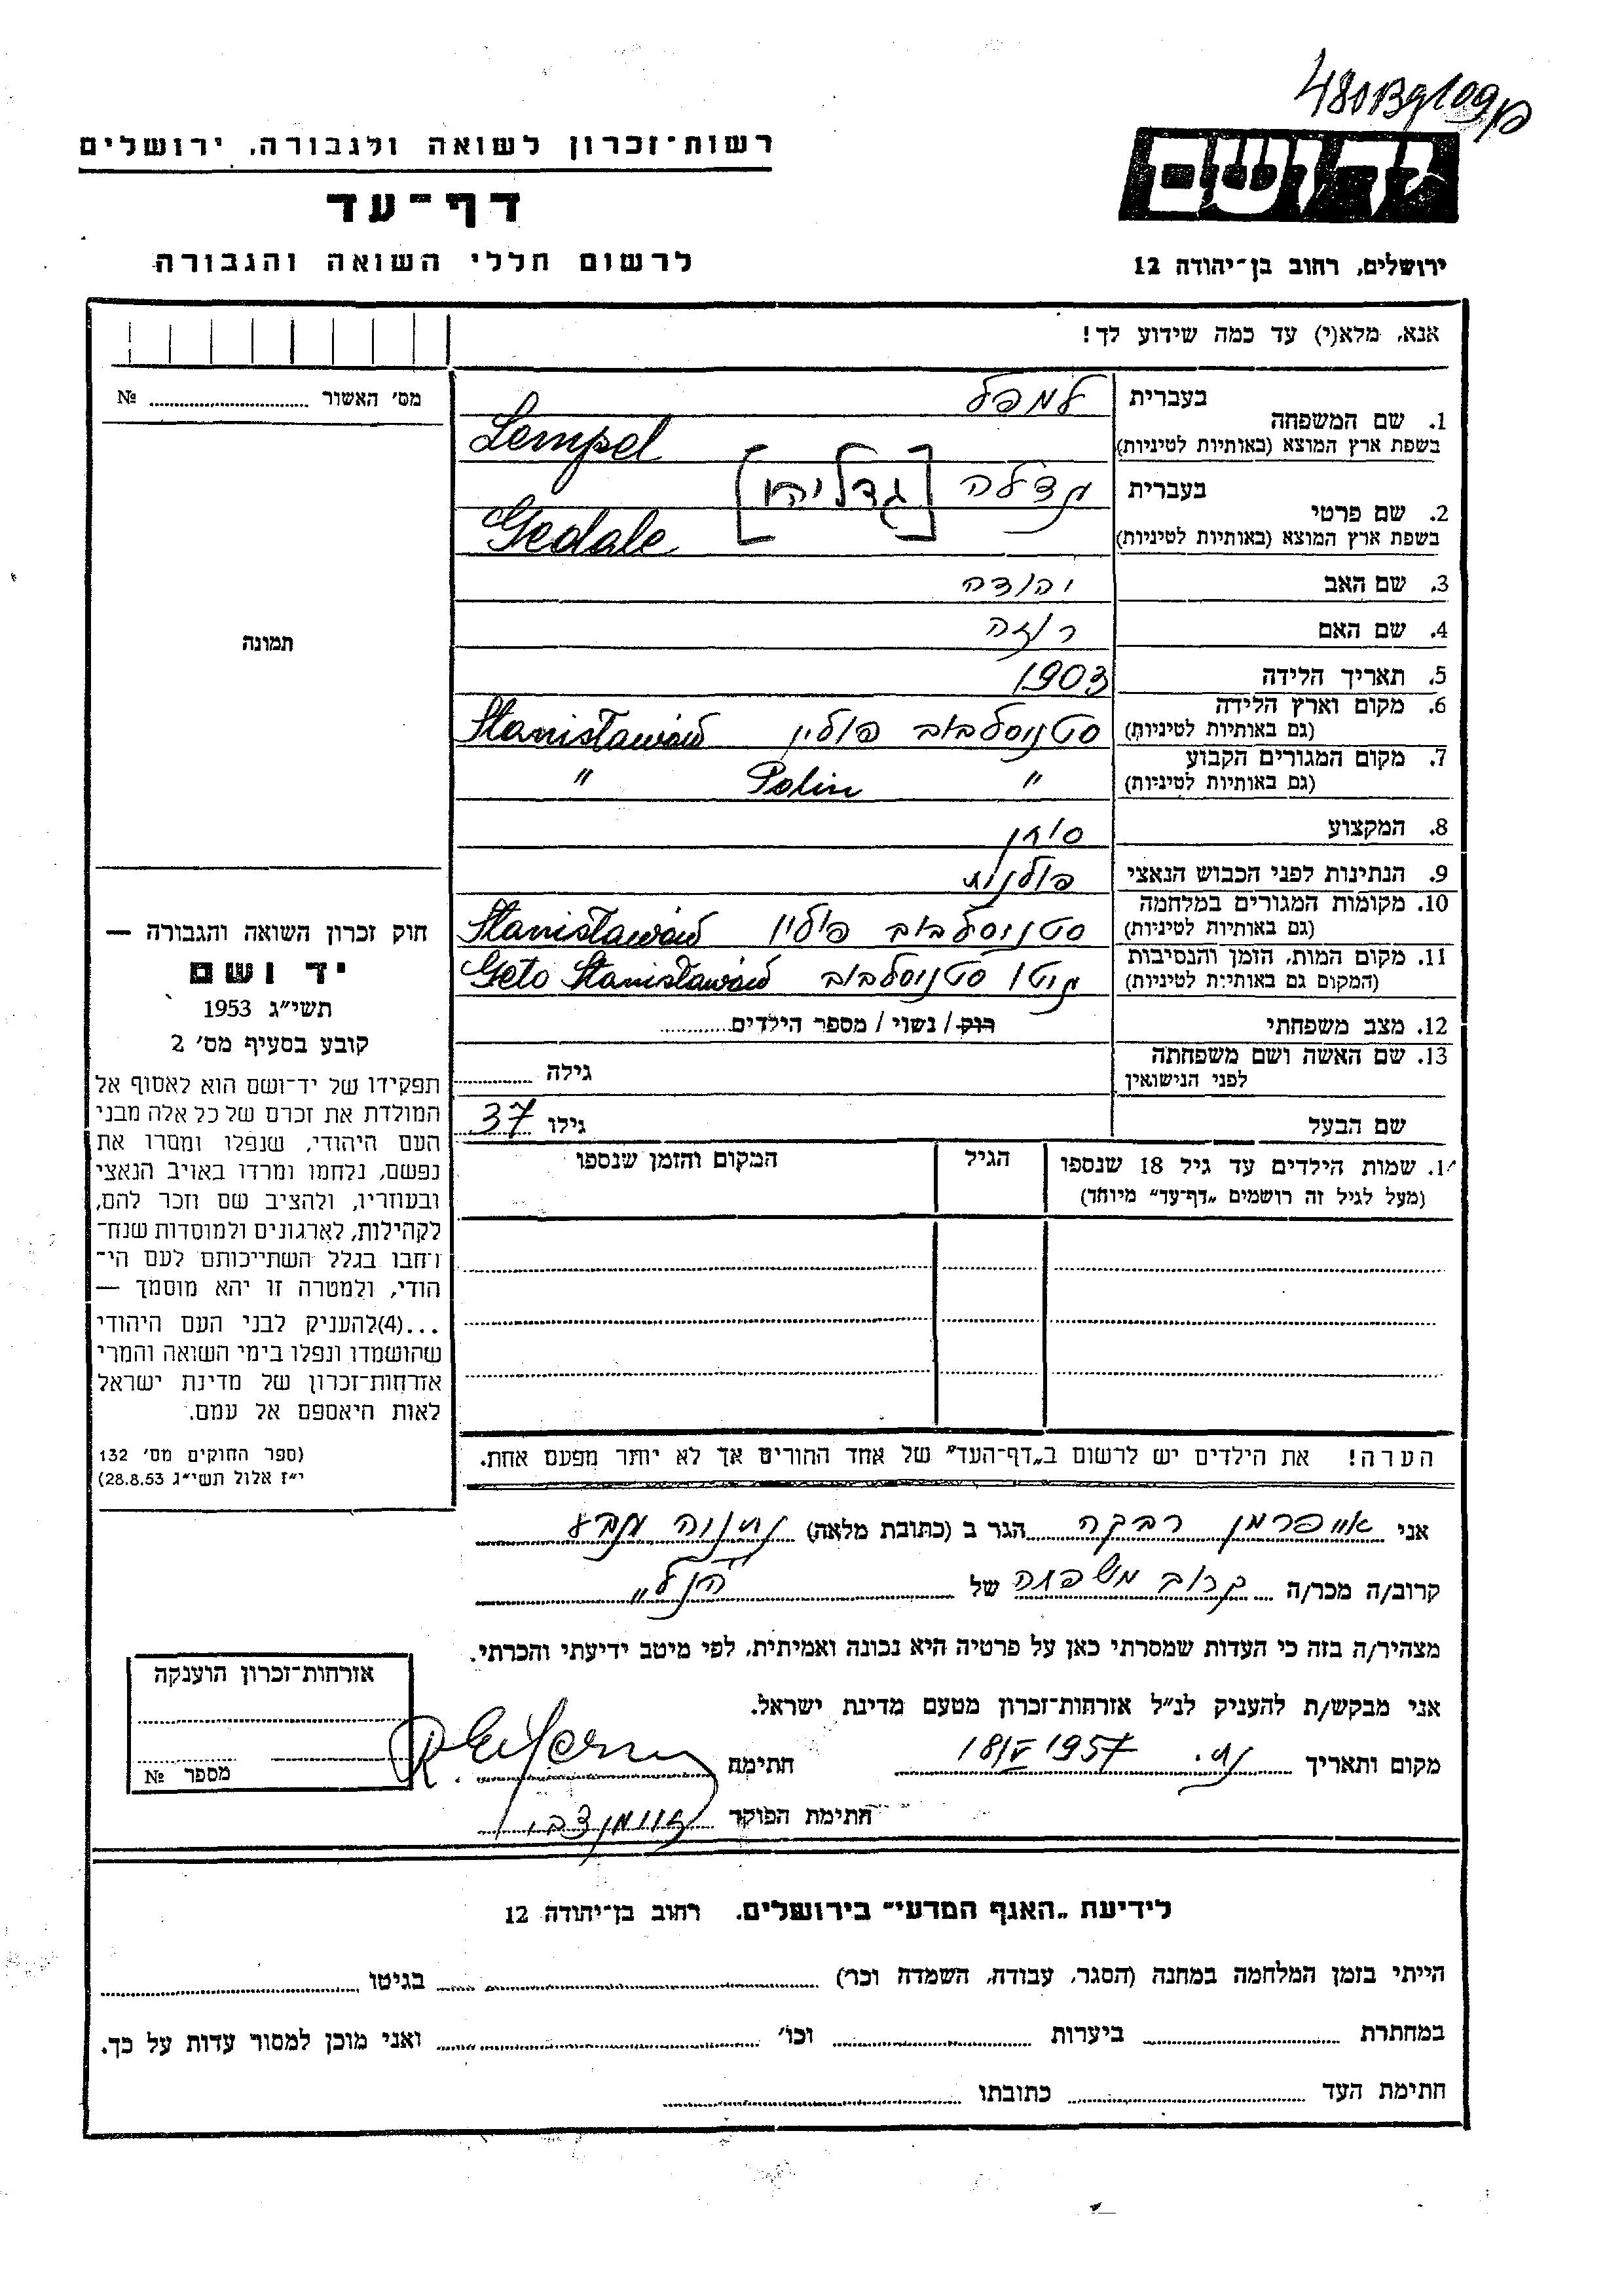 רשות־זכרון לשואה ולגבורה, ירושלים
דף־עד
לרשום חללי השואה והגבורה
יד ושם
ירושלים, רחוב בן־יהודה 12
אנא, מלא(י) עד כמה שידוע לך!
מס׳ האשור № 
1. שם המשפחה
בעברית למפל
בשפת ארץ המוצא (באותיות לטיניות) Lempel
2. שם פרטי
בעברית גדלה [גדליהו]
בשפת ארץ המוצא (באותיות לטיניות) Gedale
3. שם האב יהודה
4. שם האם רוזה
5. תאריך הלידה 1903
6. מקום וארץ הלידה סטניסלבוב פולין Stanisławów
(גם באותיות לטיניות)
7. מקום המגורים הקבוע " Polin "
(גם באותיות לטיניות)
8. המקצוע סוחר
9. הנתינות לפני הכבוש הנאצי פולנית
10. מקומות המגורים במלחמה סטניסלבוב פולין Stanisławów
(גם באותיות לטיניות)
11. מקום המות, הזמן והנסיבות גיטו סטניסלבוב Geto Stanisławów
(המקום גם באותיות לטיניות)
12. מצב משפחתי רוק / נשוי / מספר הילדים
13. שם האשה ושם משפחתה
לפני הנישואין גילה
שם הבעל גילו 37
שמות הילדים עד גיל 18 שנספו
(מעל לגיל זה רושמים „דף־עד" מיוחד)
הגיל
המקום והזמן שנספו
הערה! את הילדים יש לרשום ב„דף־העד" של אחד ההורים אך לא יותר מפעם אחת.
תמונה
חוק זכרון השואה והגבורה —
יד ושם
תשי״ג 1953
קובע בסעיף מס׳ 2
תפקידו של יד־ושם הוא לאסוף אל
המולדת את זכרם של כל אלה מבני
העם היהודי, שנפלו ומסרו את
נפשם, נלחמו ומרדו באויב הנאצי
ובעוזריו, ולהציב שם וזכר להם,
לקהילות, לארגונים ולמוסדות שנח־
רחבו בגלל השתייכותם לעם הי־
הודי, ולמטרה זו יהא מוסמך —
...(4) להעניק לבני העם היהודי
שהושמדו ונפלו בימי השואה והמרי
אזרחות־זכרון של מדינת ישראל
לאות היאספם אל עמם.
(ספר החוקים מס׳ 132
י״ז אלול תשי״ג 28.8.53)
אני אייפרמן רבקה הגר ב (כתובת מלאה) נתניה
קרוב/ה מכר/ה קרוב משפחה של הנ״ל
מצהיר/ה בזה כי העדות שמסרתי כאן על פרטיה היא נכונה ואמיתית, לפי מיטב ידיעתי והכרתי.
אני מבקש/ת להעניק לנ״ל אזרחות־זכרון מטעם מדינת ישראל.
מקום ותאריך נת. 18/V 1957 חתימת
חתימת הפוקד
אזרחות־זכרון הוענקה
מספר №
לידיעת „האגף המדעי" בירושלים, רחוב בן־יהודה 12
הייתי בזמן המלחמה במחנה (הסגר, עבודה, השמדה וכר) בגיטו
במחתרת ביערות וכו׳ ואני מוכן למסור עדות על כך.
חתימת העד כתובתו